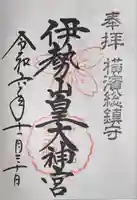 奉拝
横濱総鎮守
伊勢山皇大神宮
令和六年十一月三十日